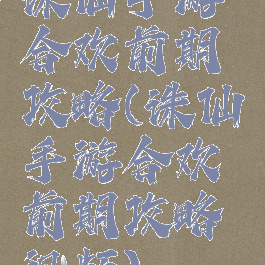 诛仙手游
合欢前期
攻略(诛仙
手游合欢
前期攻略
视频)